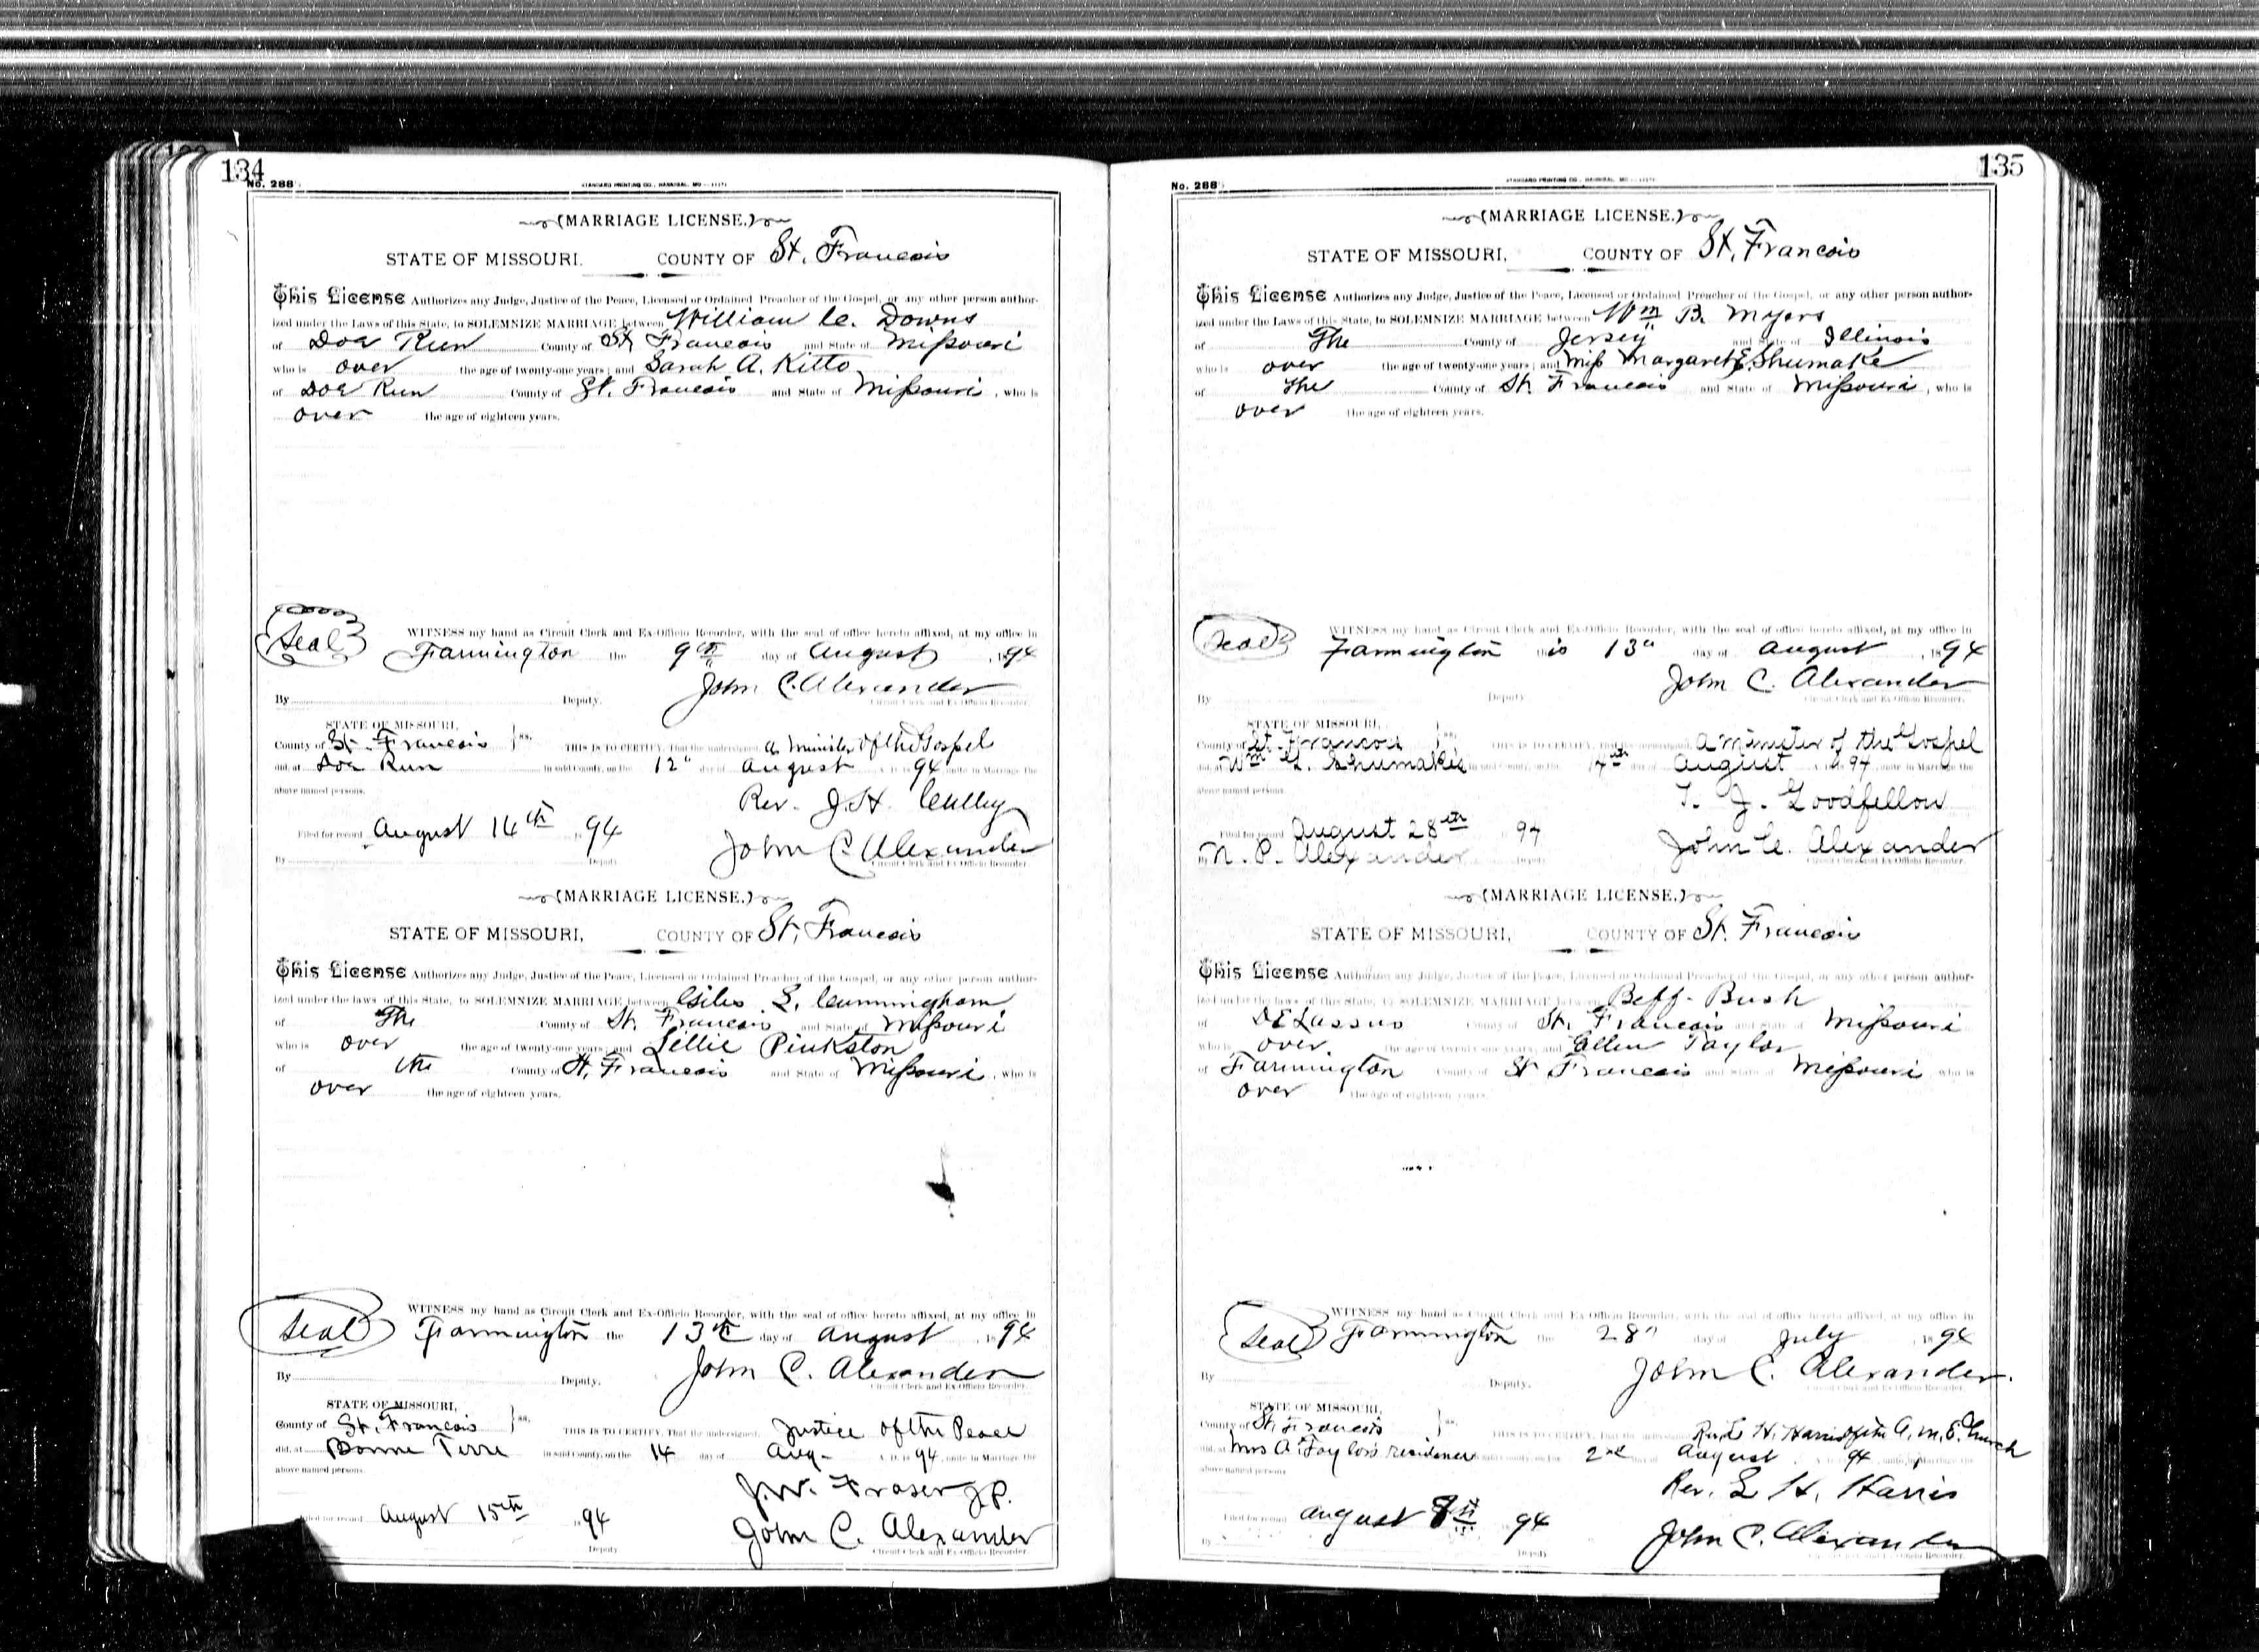 134
No. 288
STANDARD PRINTING CO., HANNIBAL, MO
(MARRIAGE LICENSE.)
STATE OF MISSOURI. COUNTY OF St. Francois
This License Authorizes any Judge, Justice of the Peace, Licensed or Ordained Preacher of the Gospel, or any other person author-
ized under the Laws of this State, to SOLEMNIZE MARRIAGE between William C. Downs
of Doe Run County of St. Francois and State of Missouri
who is over the age of twenty-one years; and Sarah A. Kitto
of Doe Run County of St. Francois and State of Missouri, who is
over the age of eighteen years.
Seal
WITNESS my hand as Circuit Clerk and Ex-Officio Recorder, with the seal of office hereto affixed, at my office in
Farmington the 9th day of August, 1894
John C. Alexander
By Deputy. Circuit Clerk and Ex-Officio Recorder.
STATE OF MISSOURI,
County of St. Francois ss. THIS IS TO CERTIFY, That the undersigned a Minister of the Gospel
did, at Doe Run in said County, on the 12" day of August A. D. 1894, unite in Marriage the
above named persons.
Rev. J. H.
Filed for record August 14th 1894
John C. Alexander
By Deputy Circuit Clerk and Ex-Officio Recorder.
(MARRIAGE LICENSE.)
STATE OF MISSOURI, COUNTY OF St. Francois
This License Authorizes any Judge, Justice of the Peace, Licensed or Ordained Preacher of the Gospel, or any other person author-
ized under the laws of this State, to SOLEMNIZE MARRIAGE between Giles L. Cunningham
of The County of St. Francois and State of Missouri
who is over the age of twenty-one years; and Lillie Pinkston
of the County of St. Francois and State of Missouri, who is
over the age of eighteen years.
Seal
WITNESS my hand as Circuit Clerk and Ex-Officio Recorder, with the seal of office hereto affixed, at my office in
Farmington the 13th day of August, 1894
John C. Alexander
By Deputy. Circuit Clerk and Ex-Officio Recorder.
STATE OF MISSOURI,
County of St. Francois ss. THIS IS TO CERTIFY, That the undersigned Justice of the Peace
did, at Bonne Terre in said County, on the 14 day of Aug- A. D. 1894, unite in Marriage the
above named persons.
J. W. Fraser J.P.
Filed for record August 15th 1894
John C. Alexander
Deputy. Circuit Clerk and Ex-Officio Recorder.
135
No. 288
STANDARD PRINTING CO., HANNIBAL, MO
(MARRIAGE LICENSE.)
STATE OF MISSOURI, COUNTY OF St. Francois
This License Authorizes any Judge, Justice of the Peace, Licensed or Ordained Preacher of the Gospel, or any other person author-
ized under the Laws of this State, to SOLEMNIZE MARRIAGE between Wm B. Myers
of The County of Jersey and State of Illinois
who is over the age of twenty-one years; and Miss Margaret E. Shumake
of the County of St. Francois and State of Missouri, who is
over the age of eighteen years.
Seal
WITNESS my hand as Circuit Clerk and Ex-Officio Recorder, with the seal of office hereto affixed, at my office in
Farmington this 13" day of August, 1894
John C. Alexander
By Deputy Circuit Clerk and Ex-Officio Recorder.
STATE OF MISSOURI,
County of St. Francois ss. THIS IS TO CERTIFY, That the undersigned a minister of the Gospel
did, at Wm G. Shumakes in said County, on the day of August A. D. 1894, unite in Marriage the
above named persons.
T. J. Goodfellow
Filed for record August 28th 1894
John C. Alexander
By N. P. Alexander Deputy Circuit Clerk and Ex-Officio Recorder.
(MARRIAGE LICENSE.)
STATE OF MISSOURI, COUNTY OF St. Francois
This License Authorizes any Judge, Justice of the Peace, Licensed or Ordained Preacher of the Gospel, or any other person author-
ized under the laws of this State, to SOLEMNIZE MARRIAGE between Beff. Bush
of DeLassus County of St. Francois and State of Missouri
who is over the age of twenty-one years; and Ellen Taylor
of Farmington County of St Francois and State of Missouri who is
over the age of eighteen years.
Seal
WITNESS my hand as Circuit Clerk and Ex-Officio Recorder, with the seal of office hereto affixed, at my office in
Farmington the 28" day of July 1894
John C. Alexander.
By Deputy. Circuit Clerk and Ex-Officio Recorder.
STATE OF MISSOURI,
County of St. Francois ss. THIS IS TO CERTIFY, That the undersigned H. Harris of the A. M. E. Church
did, at Mrs A. Taylors residence in said County, on the 2nd day of August 94, unite in Marriage the
above named persons
Rev. L H. Harris
Filed for record August 1894
John C. Alexander
By Deputy Circuit Clerk and Ex-Officio Recorder.